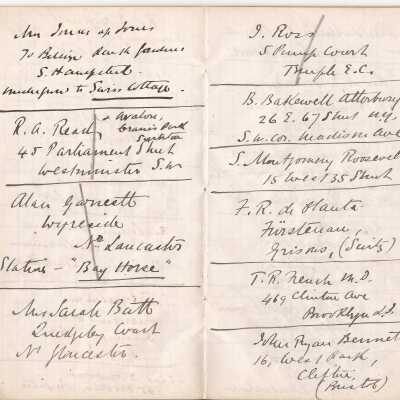 Mrs Jonas ap Jones
70 Belsize Park Gardens
S. Hampstead.
underground to Swiss Cottage.
R. A. Read, Avalon,
45 Parliament Street
Westminster S.W.
Alan Garnett
Wyreside
Nr Lancaster
Station - "Bay Horse"
Mrs Sarah Batt
Quedgeley Court
Nr Gloucester.
J. Ross
5 Pump Court
Temple E.C.
B. Bakewell Atterbury
26 E. 67 Street N.Y.
S.W. Cor. Madison Ave
S. Montgomery Roosevelt
15 West 35 Street
F. R. de Planta
Fürstenau,
Grisons, (Switz)
T. R. French M.D.
469 Clinton Ave
Brooklyn L.I.
John Ryan Bennett
16, West Park,
Clifton
(Bristol)